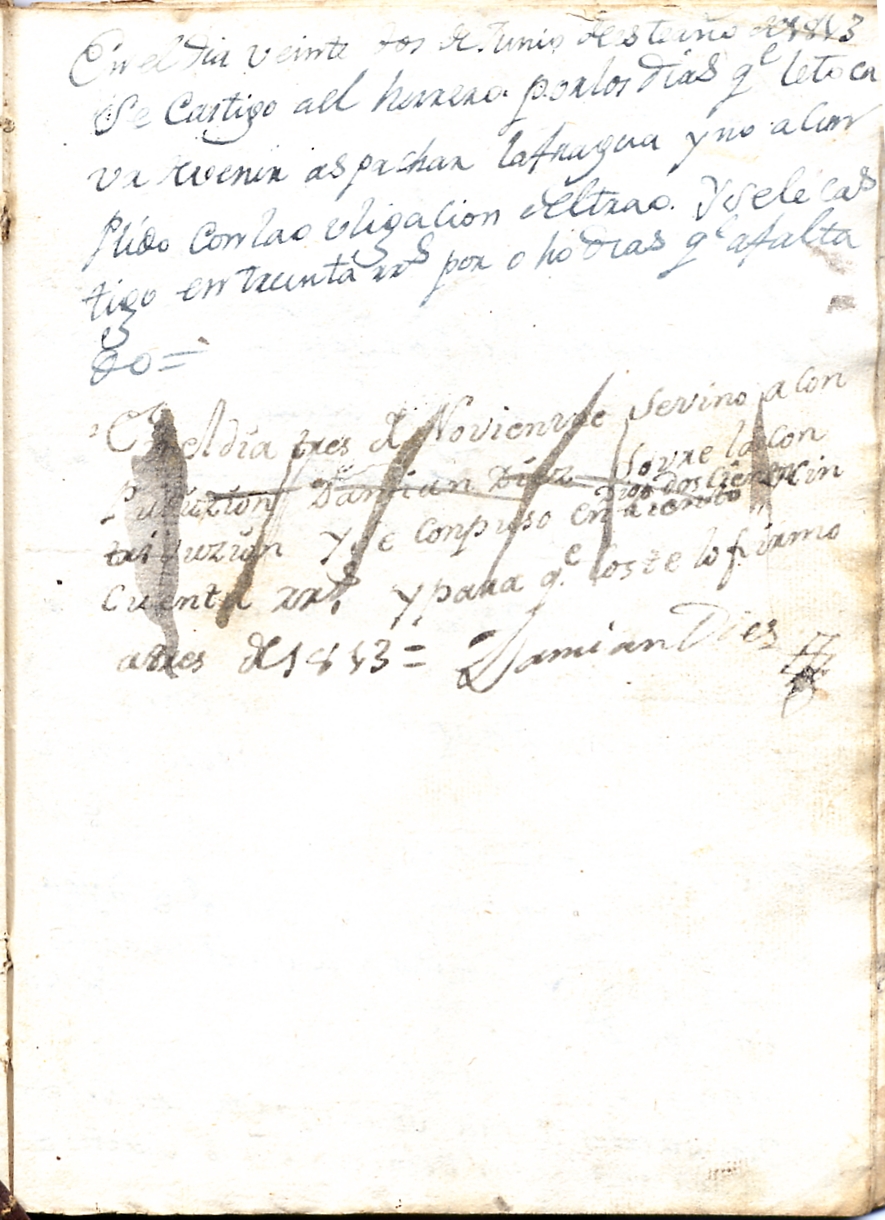 En el dia veinte dos de Junio deste año de 1843
Se Castigo a el herrero por los dias qe le toca
va avenir as pachar la fragua y no a Cum
Plido Con la o vligacion del trao. Y se le cas
tigo en treinta rrs por o ho dias qe a falta
do =
En el dia tres de Novienvre se vino a Con
Puiuzion Damian Diez Sovre la con
tri vuzion y se Conpuso en dos cientos cin
Cuenta rrs. y para qe Coste lo firmo
a tres de 1843 = Damian Dies